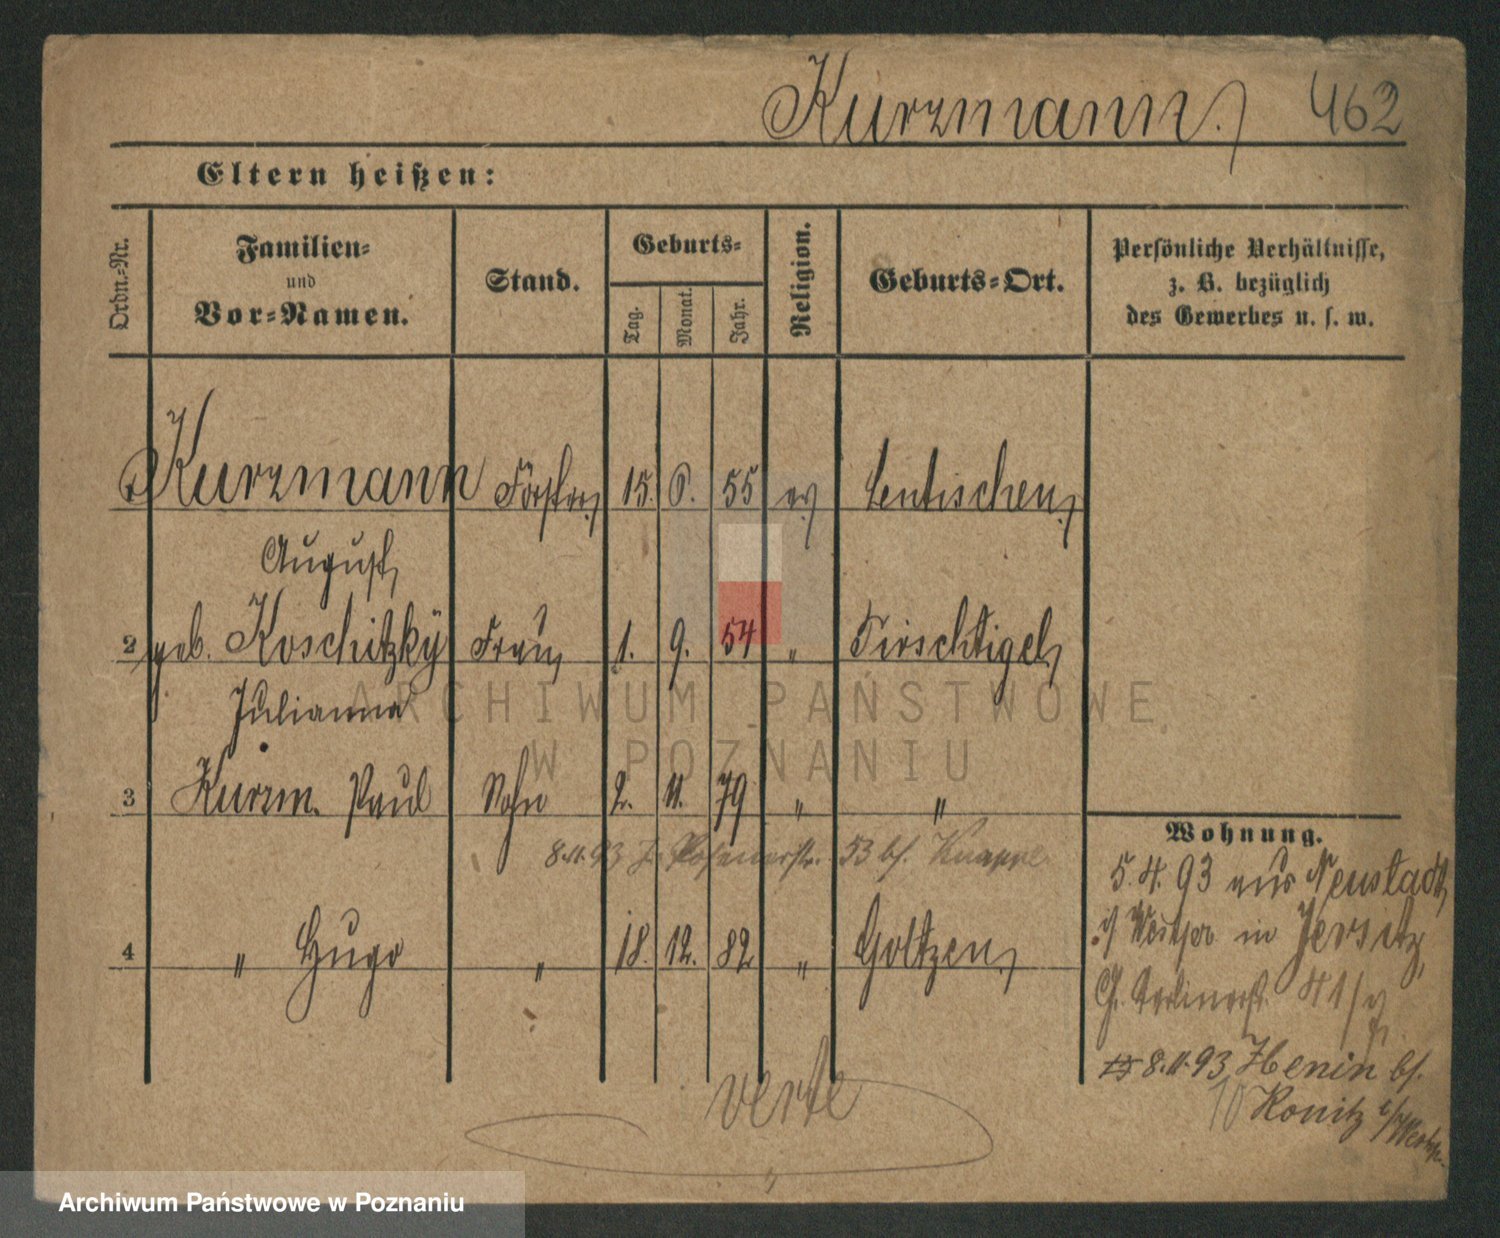 Kurzmann. 462
Eltern heißen:
Ordn.=Nr. Familien= und Vor=Namen. Stand. Geburts= Tag. Monat. Jahr. Religion. Geburts=Ort. Persönliche Verhältnisse, z. B. bezüglich des Gewerbes u. s. w.
1 Kurzmann Förster 15. 6. 55 ev Bentschen
August
2 geb. Koschitzky Frau 1. 9. 54 " Tirschtigel
Julianna
3 Kurzm. Paul Sohn 2. 11. 79 " "
8.11.93 Posenerstr. 53 bf. Knappe
4 " Hugo " 18. 12. 82 " Goltzen
Wohnung.
5.4.93 aus Neustadt
in Jersitz
Gr. Berlinerstr. 41
8.11.93 bf.
Konitz
verte
ARCHIWUM PAŃSTWOWE
W POZNANIU
Archiwum Państwowe w Poznaniu